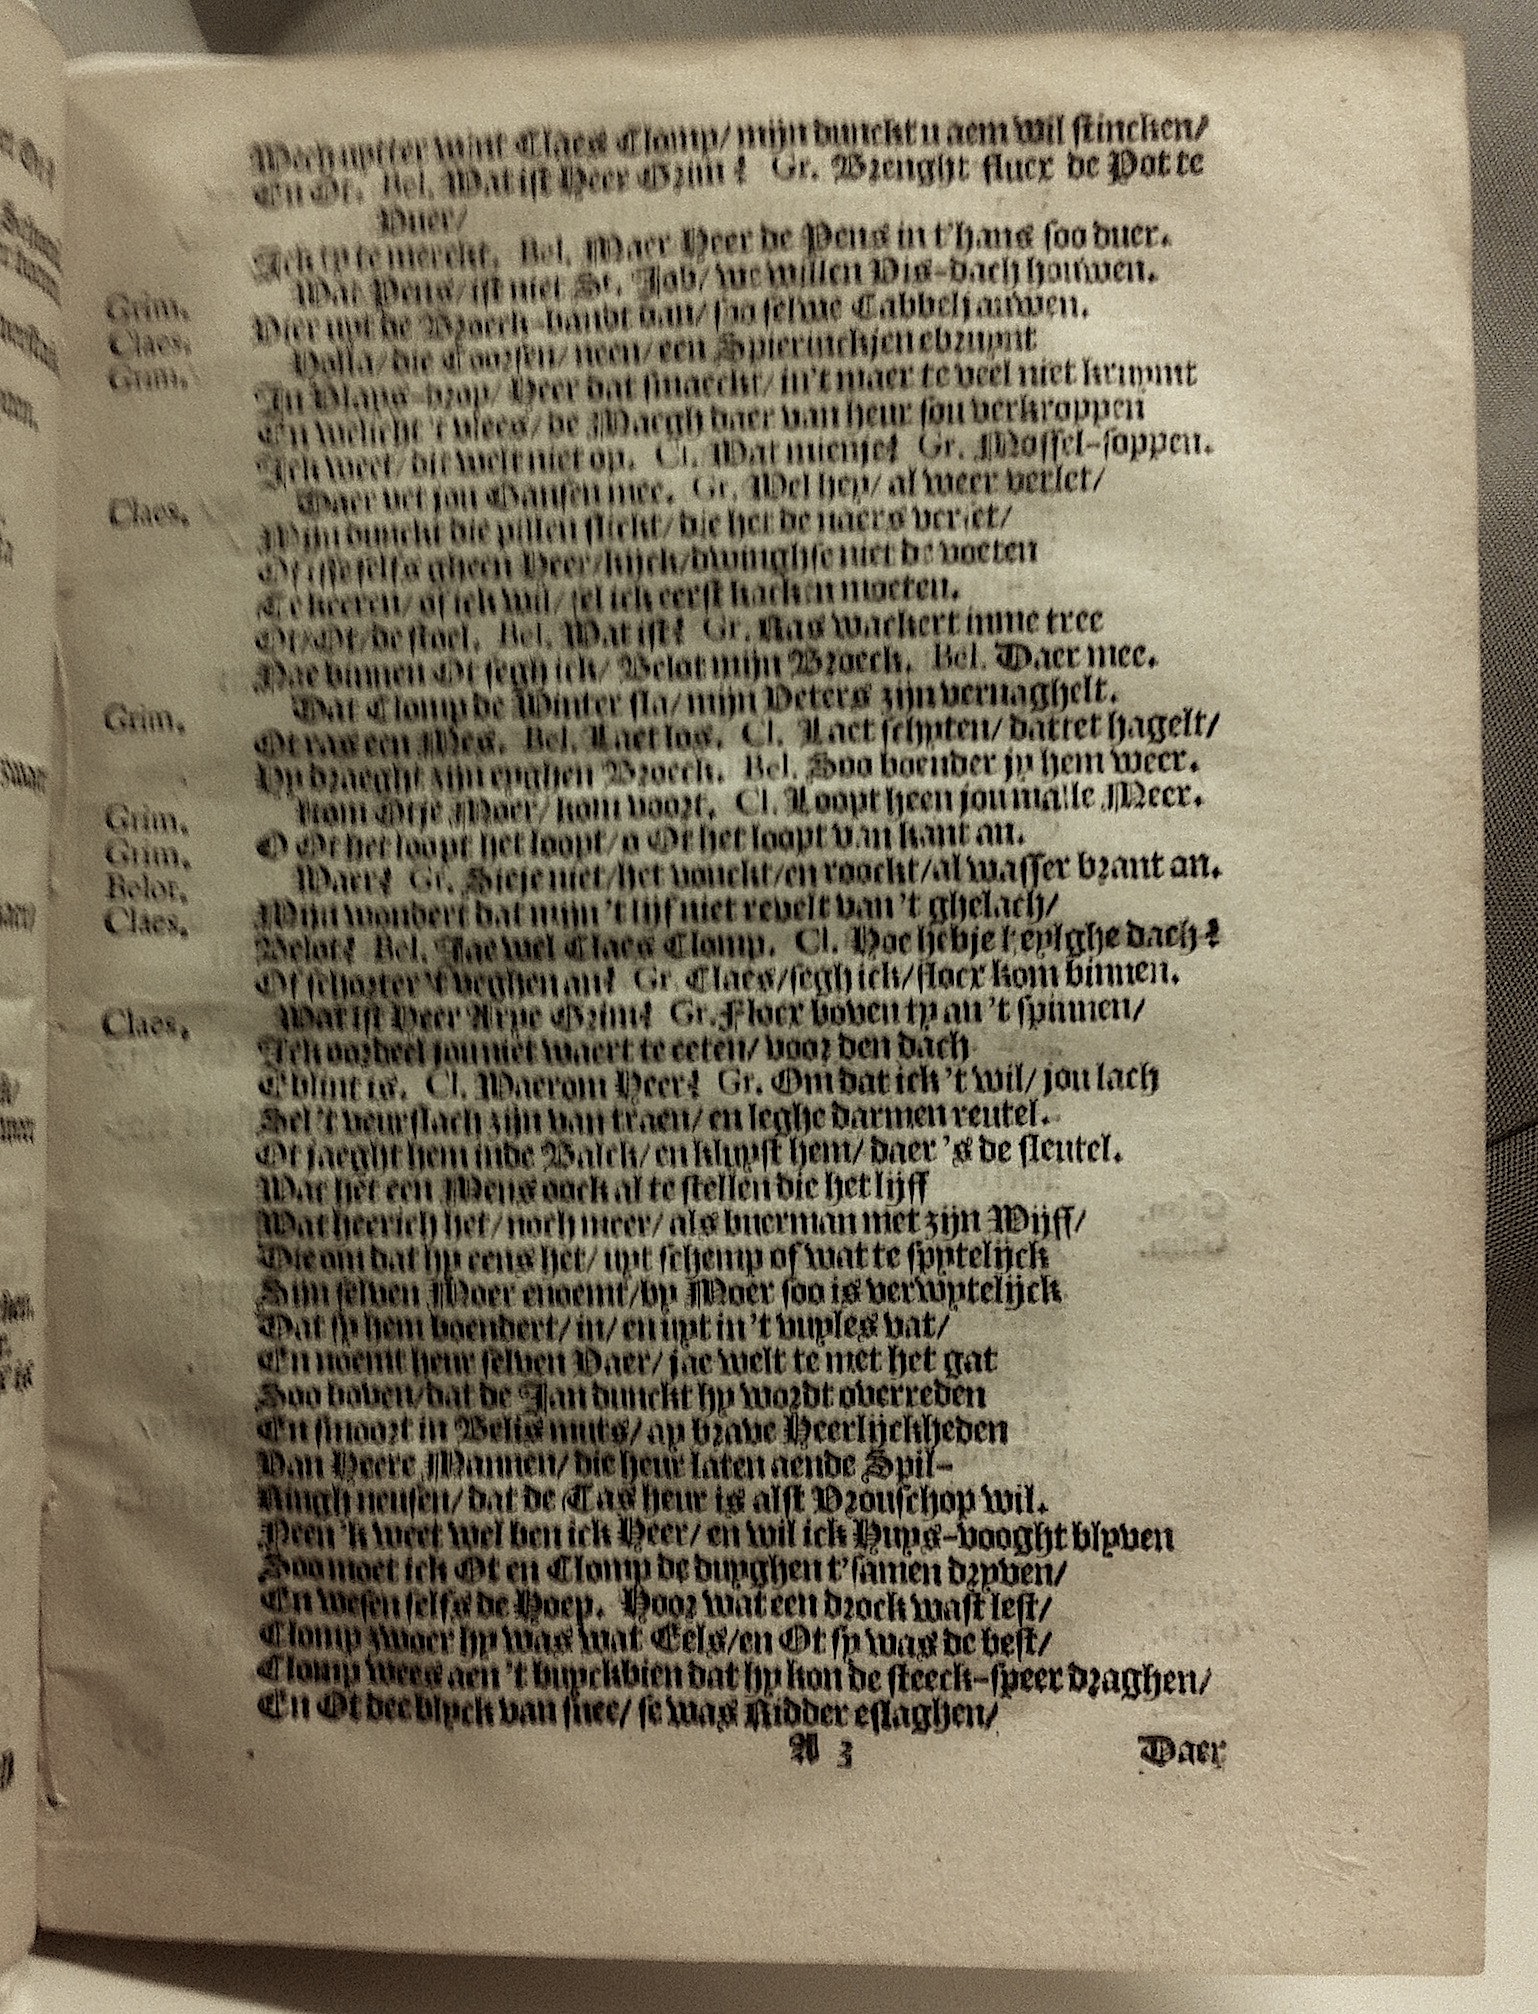 Wech uptter wint Claes Clomp/ mijn dunckt u aem wil stincken/
En Ot. Bel. Wat ist Heer Grim? Gr. Brenght flucx de Pot te
Vuer/
Ick ty te merckt. Bel. Maer Heer de Pens in t'hans soo duer.
Grim. Wat Pens/ ist niet St. Job/ we willen Vis-dach houwen.
Claes. Hier uyt de Broeck-bandt dan/ soo selwe Cabbeljauwen.
Grim. Holla/ die Coorsen/ neen/ een Spierinckjen ebruynt
In Vlays-drop/ Heer dat smaeckt/ in't maer te veel niet kruymt
En welicht 't vlees/ de Maegh daer van heur sou verkroppen
Ick weet/ dit welt niet op. Cl. Wat mienje? Gr. Mossel-soppen.
Claes. Daer vet jou Gansen mee. Gr. Wel hey/ al weer verlet/
Mijn dunckt die pillen slickt/ die het de naers verset/
Of isse selfs gheen Heer/ kijck/ dwinghse niet de voeten
Te keeren/ of ick wil/ sel ick eerst kacken moeten.
Ot/ Ot/ de stoel. Bel. Wat ist? Gr. Ras wackert inne tree
Nae binnen Ot segh ick/ Belot mijn Broeck. Bel. Daer mee.
Grim. Dat Clomp de Winter sla/ mijn Veters zijn vernaghelt.
Ot ras een Mes. Bel. Laet los. Cl. Laet schyten/ dattet hagelt/
Hy draeght zijn eyghen Broeck. Bel. Soo boender jy hem weer.
Grim. Kom Otje Moer/ kom voort. Cl. Loopt heen jou malle Meer.
Grim. O Ot het loopt het loopt/ o Ot het loopt van kant an.
Belot. Waer? Gr. Sieje niet/ het vonckt/ en roockt/ al wasser brant an.
Claes. Mijn wondert dat mijn 't lijf niet revelt van 't ghelach/
Belot? Bel. Jae wel Claes Clomp. Cl. Hoe hebje heylghe dach?
Of schorter 't veghen an? Gr. Claes/ segh ick/ flocx kom binnen.
Claes. Wat ist Heer Arye Grim? Gr. Flocx boven ty an 't spinnen/
Ick oordeel jou niet waert te eeten/ voor den dach
Eblint is. Cl. Waerom Heer? Gr. Om dat ick 't wil/ jou lach
Sel 't veurslach zijn van traen/ en leghe darmen reutel.
Ot jaeght hem inde Balck/ en kluyst hem/ daer 's de sleutel.
Wat het een Mens oock al te stellen die het lijff
Wat heerich het/ noch meer/ als buerman met zijn Wijff/
Die om dat hy eens het/ uyt schemp of wat te spytelijck
Sijn selven Moer enoemt/ by Moer soo is verwytelijck
Dat sy hem boendert/ in/ en uyt in 't vuyles vat/
En noemt heur selven Vaer/ jae welt te met het gat
Soo boven/ dat de Jan dunckt hy wordt overreden
En smoort in Belis muts/ ay brave Heerlijckheden
Van Heere Mannen/ die heur laten aende Spil-
Ringh neusen/ dat de Tas heur is alst Vrouschop wil.
Neen 'k weet wel ben ick Heer/ en wil ick Huys-vooght blyven
Soo moet ick Ot en Clomp de duyghen t'samen dryven/
En wesen selfs de Hoep. Hoor wat een drock wast lest/
Clomp zwoer hy was wat Eels/ en Ot sy was de best/
Clomp wees aen 't buyckbien dat hy kon de steeck-speer draghen/
En Ot dee blyck van snee/ se was Ridder eslaghen/
A 3 Daer